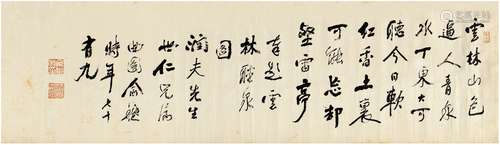 雲林山色
逼人青泉
水丁東大可
聽今日軟
紅香土裏
可能忘却
壑雷亭
奉題雲
林聽泉
圖
潤夫先生
世仁兄属
曲園俞樾
時年七十
有九